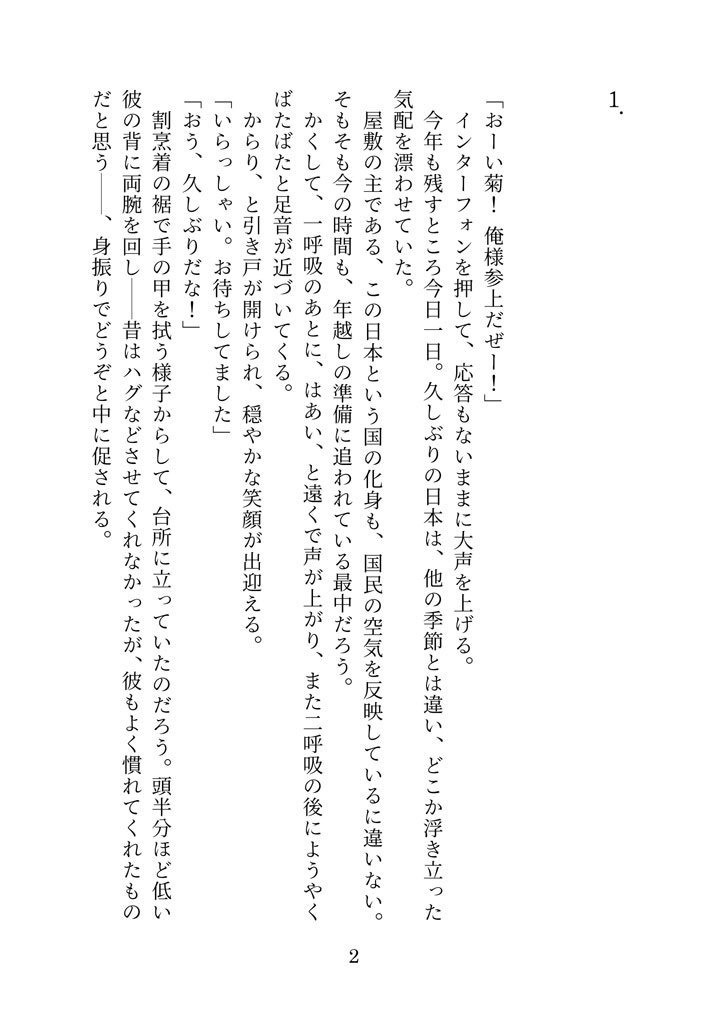 1.
「おーい菊！ 俺様参上だぜー！」
インターフォンを押して、応答もないままに大声を上げる。
今年も残すところ今日一日。久しぶりの日本は、他の季節とは違い、どこか浮き立った
気配を漂わせていた。
屋敷の主である、この日本という国の化身も、国民の空気を反映しているに違いない。
そもそも今の時間も、年越しの準備に追われている最中だろう。
かくして、一呼吸のあとに、はあい、と遠くで声が上がり、また二呼吸の後にようやく
ばたばたと足音が近づいてくる。
からり、と引き戸が開けられ、穏やかな笑顔が出迎える。
「いらっしゃい。お待ちしてました」
「おう、久しぶりだな！」
割烹着の裾で手の甲を拭う様子からして、台所に立っていたのだろう。頭半分ほど低い
彼の背に両腕を回し――昔はハグなどさせてくれなかったが、彼もよく慣れてくれたもの
だと思う――、身振りでどうぞと中に促される。
2